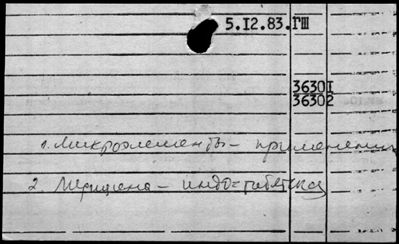 5.I2.83.ГШ
3630I
36302
1. Микроэлементы - применение
2. Медицина - индо-тибетская